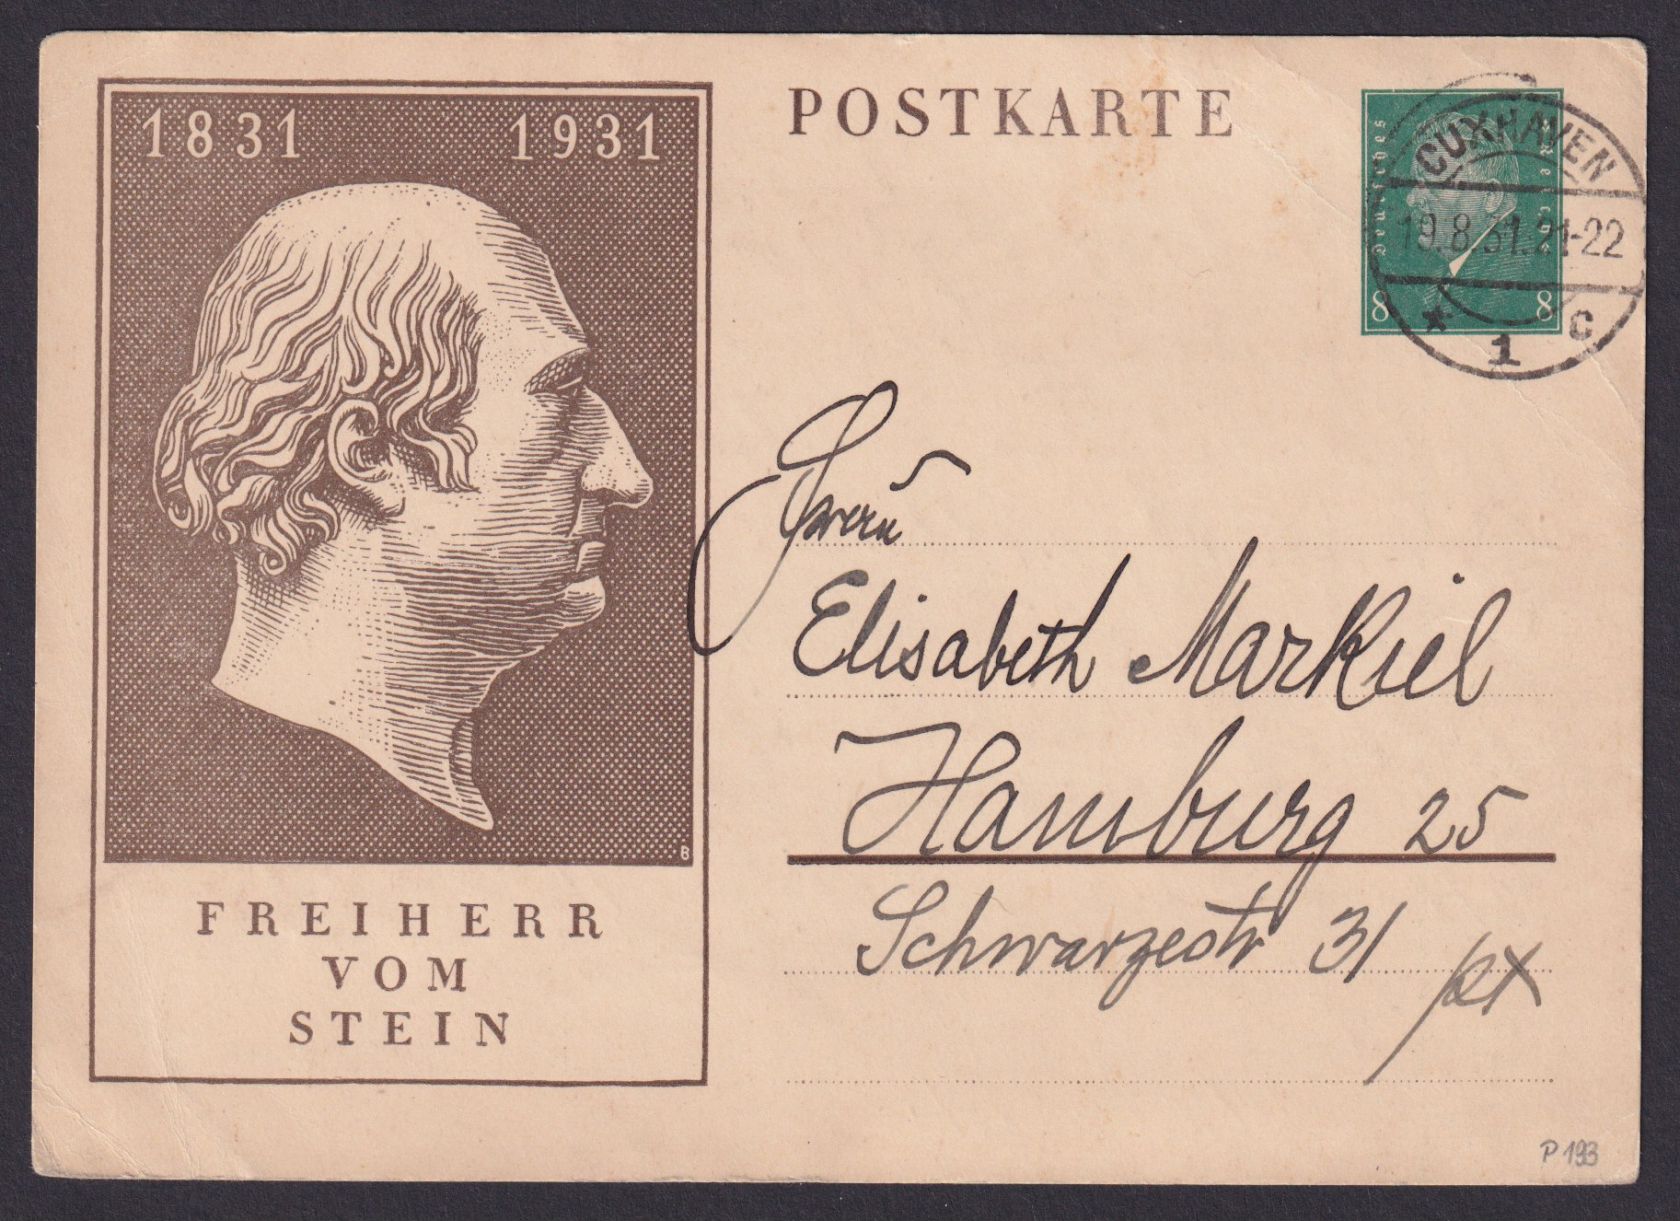 1831 1931
FREIHERR
VOM
STEIN
POSTKARTE
Deutsches Reich
8 8
CUXHAVEN
19.8.31.21-22
* 1 c
Frau
Elisabeth Markiel
Hamburg 25
Schwarzestr 31
B
P 193